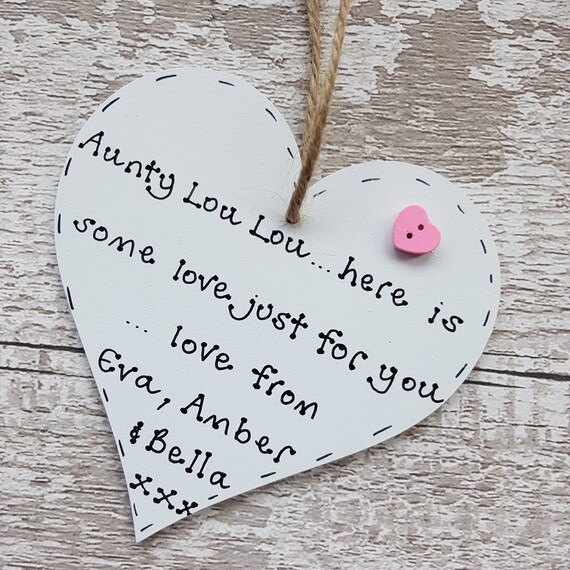 Aunty Lou Lou... here is
some love just for you
... love from
Eva, Amber
& Bella
xxx